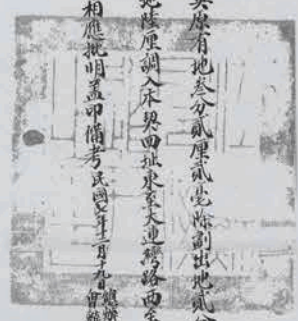 契原有地叁分貳厘貳毫除劃出地貳分
地陸厘調入本契四址東至大連灣路西至
相應批明蓋印備考民國七年十一月十九日